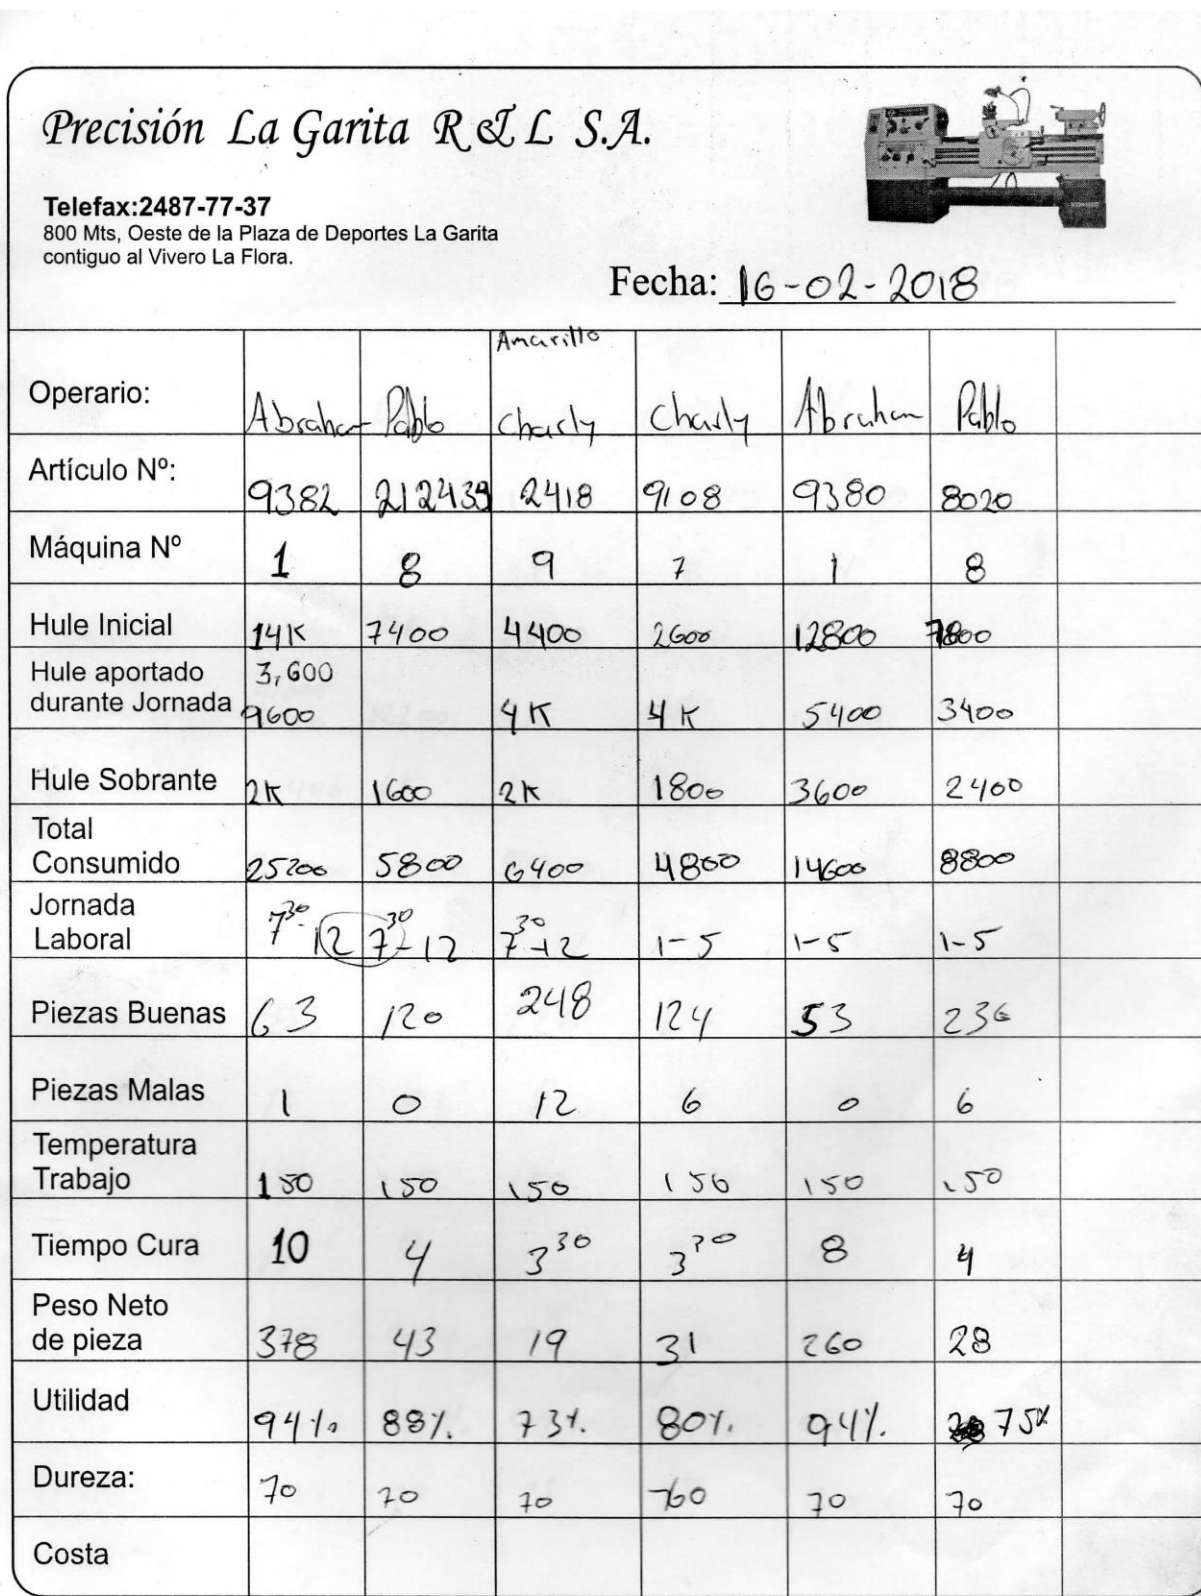 Precisión La Garita R & L S.A.
Telefax:2487-77-37
800 Mts, Oeste de la Plaza de Deportes La Garita
contiguo al Vivero La Flora.
Fecha: 16-02-2018
Amarillo
Operario: Abraham Pablo Charly Charly Abraham Pablo
Artículo Nº: 9382 212439 2418 9108 9380 8020
Máquina Nº 1 8 9 7 1 8
Hule Inicial 14K 7400 4400 2600 12800 7800
Hule aportado 3,600
durante Jornada 9600 4K 4K 5400 3400
Hule Sobrante 2K 1600 2K 1800 3600 2400
Total
Consumido 25200 5800 6400 4800 14600 8800
Jornada
Laboral 7³⁰-12 7³⁰-12 7³⁰-12 1-5 1-5 1-5
Piezas Buenas 63 120 248 124 53 236
Piezas Malas 1 0 12 6 0 6
Temperatura
Trabajo 150 150 150 150 150 150
Tiempo Cura 10 4 3³⁰ 3³⁰ 8 4
Peso Neto
de pieza 378 43 19 31 260 28
Utilidad 94% 88% 73% 80% 94% 75%
Dureza: 70 70 70 60 70 70
Costa